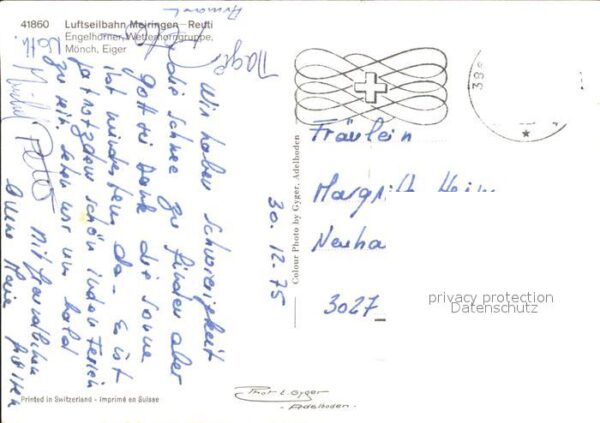 41860 Luftseilbahn Meiringen - Reuti
Engelhörner, Wetterhorngruppe,
Mönch, Eiger
Wir haben Schwierigkeit
die Schnee zu finden aber
Gott sei Dank die Sonne
ist mindestens da - Es ist
ja trotzdem schön in den Ferien
zu sein. Sehen wir uns bald
Mit freundlichen
Anne Marie
30.12.75
Colour Photo by Gyger, Adelboden
Fräulein
Margrit
Neuha
3027
privacy protection
Datenschutz
Printed in Switzerland - Imprimé en Suisse
Thor E. Gyger
- Adelboden -